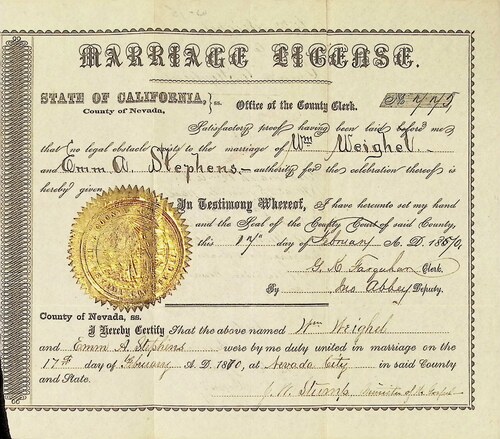 MARRIAGE LICENSE.
STATE OF CALIFORNIA, } ss.
County of Nevada,
Office of the County Clerk.
No 775
Satisfactory proof having been laid before me
that no legal obstacle exists to the marriage of Wm Weighel
and Emm A. Stephens.— authority for the celebration thereof is
hereby given
In Testimony Whereof, I have hereunto set my hand
and the Seal of the County Court of said County,
this 17th day of February A. D. 1870,
G. K. Farquhar Clerk.
By Jno Abbey Deputy.
County of Nevada, ss.
I Hereby Certify That the above named Wm Weighel
and Emm A. Stephens were by me duly united in marriage on the
17th day of February A. D. 1870, at Nevada City in said County
and State.
J. W. Stump minister of the Gospel